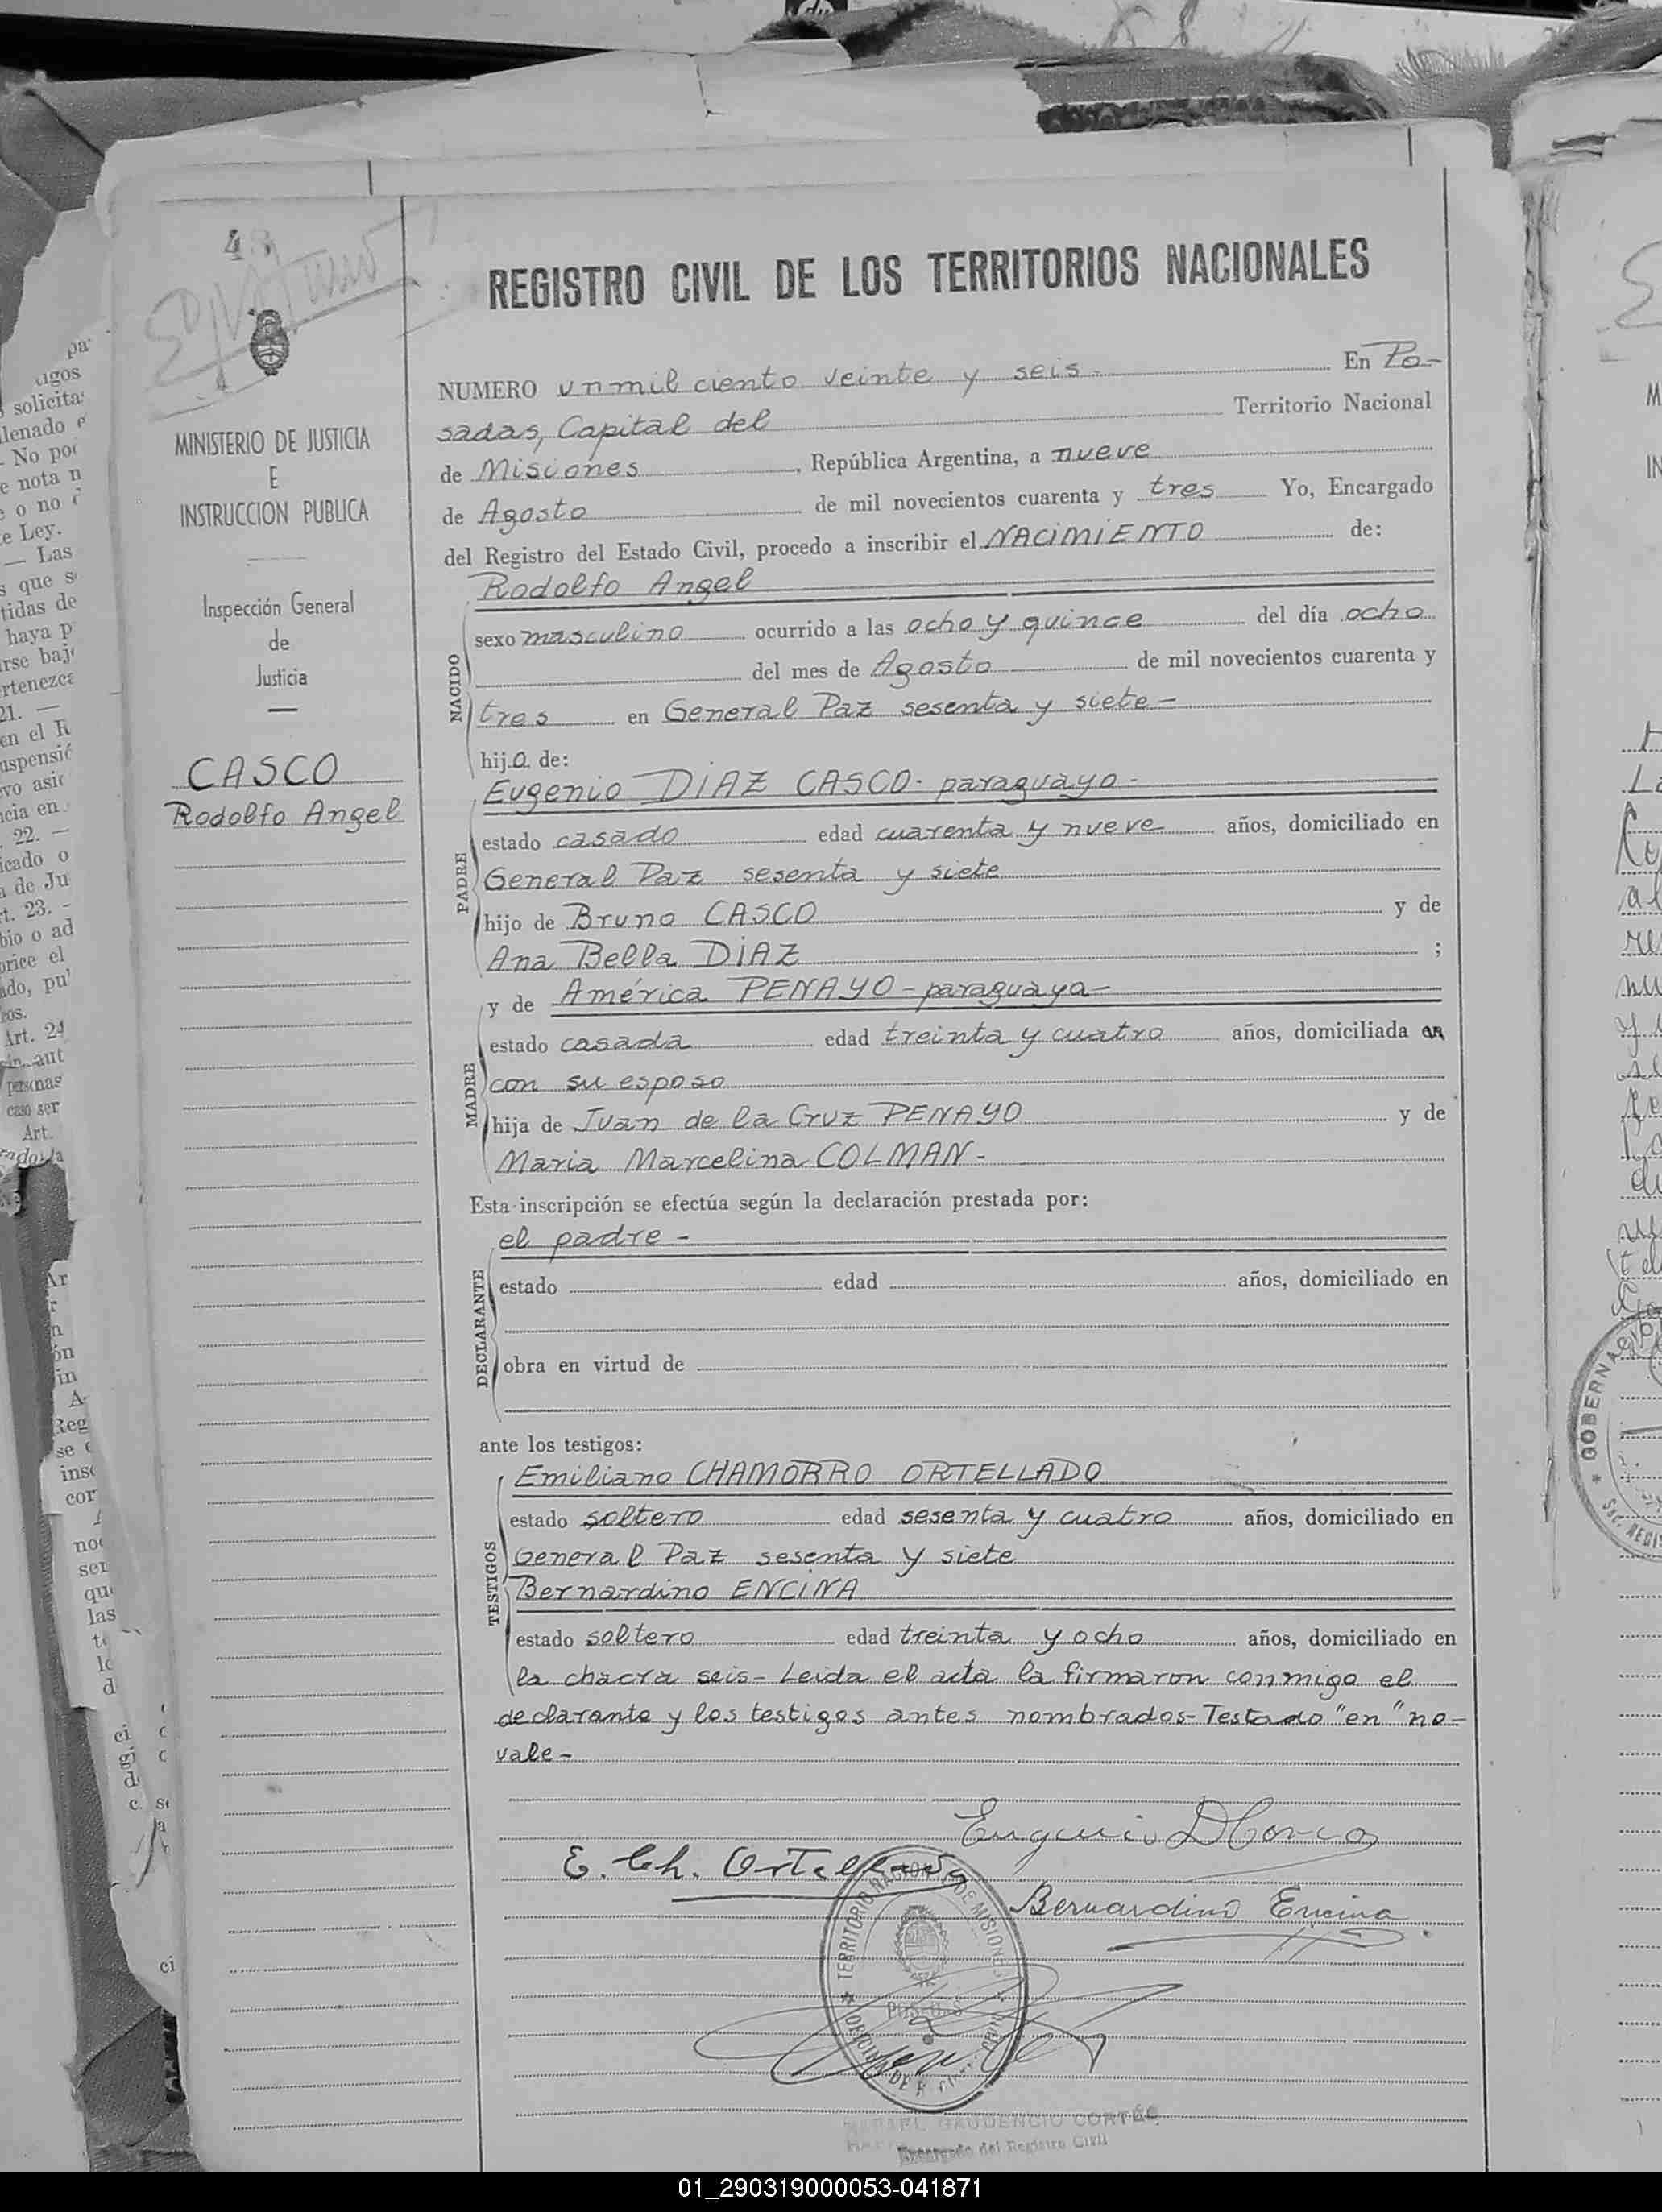 REGISTRO CIVIL DE LOS TERRITORIOS NACIONALES
MINISTERIO DE JUSTICIA
E
INSTRUCCION PUBLICA
Inspección General
de
Justicia
CASCO
Rodolfo Angel
NUMERO un mil ciento veinte y seis - En Po-
sadas, Capital del Territorio Nacional
de Misiones, República Argentina, a nueve
de Agosto de mil novecientos cuarenta y tres Yo, Encargado
del Registro del Estado Civil, procedo a inscribir el NACIMIENTO de:
NACIDO
Rodolfo Angel
sexo masculino ocurrido a las ocho y quince del día ocho
del mes de Agosto de mil novecientos cuarenta y
tres en General Paz sesenta y siete -
hijo de:
PADRE
Eugenio DIAZ CASCO - paraguayo -
estado casado edad cuarenta y nueve años, domiciliado en
General Paz sesenta y siete
hijo de Bruno CASCO y de
Ana Bella DIAZ ;
MADRE
y de América PENAYO - paraguaya -
estado casada edad treinta y cuatro años, domiciliada en
con su esposo
hija de Juan de la Cruz PENAYO y de
Maria Marcelina COLMAN -
Esta inscripción se efectúa según la declaración prestada por:
DECLARANTE
el padre -
estado edad años, domiciliado en
obra en virtud de
ante los testigos:
TESTIGOS
Emiliano CHAMORRO ORTELLADO
estado soltero edad sesenta y cuatro años, domiciliado en
General Paz sesenta y siete
Bernardino ENCINA
estado soltero edad treinta y ocho años, domiciliado en
la chacra seis - Leida el acta la firmaron conmigo el
declarante y los testigos antes nombrados - Testado "en" no -
vale -
Eugenio D Casco
E. Ch. Ortellado
Bernardino Encina
TERRITORIO NACIONAL DE MISIONES
POSADAS
RAFAEL GAUDENCIO CORTÉS
Encargado del Registro Civil
01_290319000053-041871